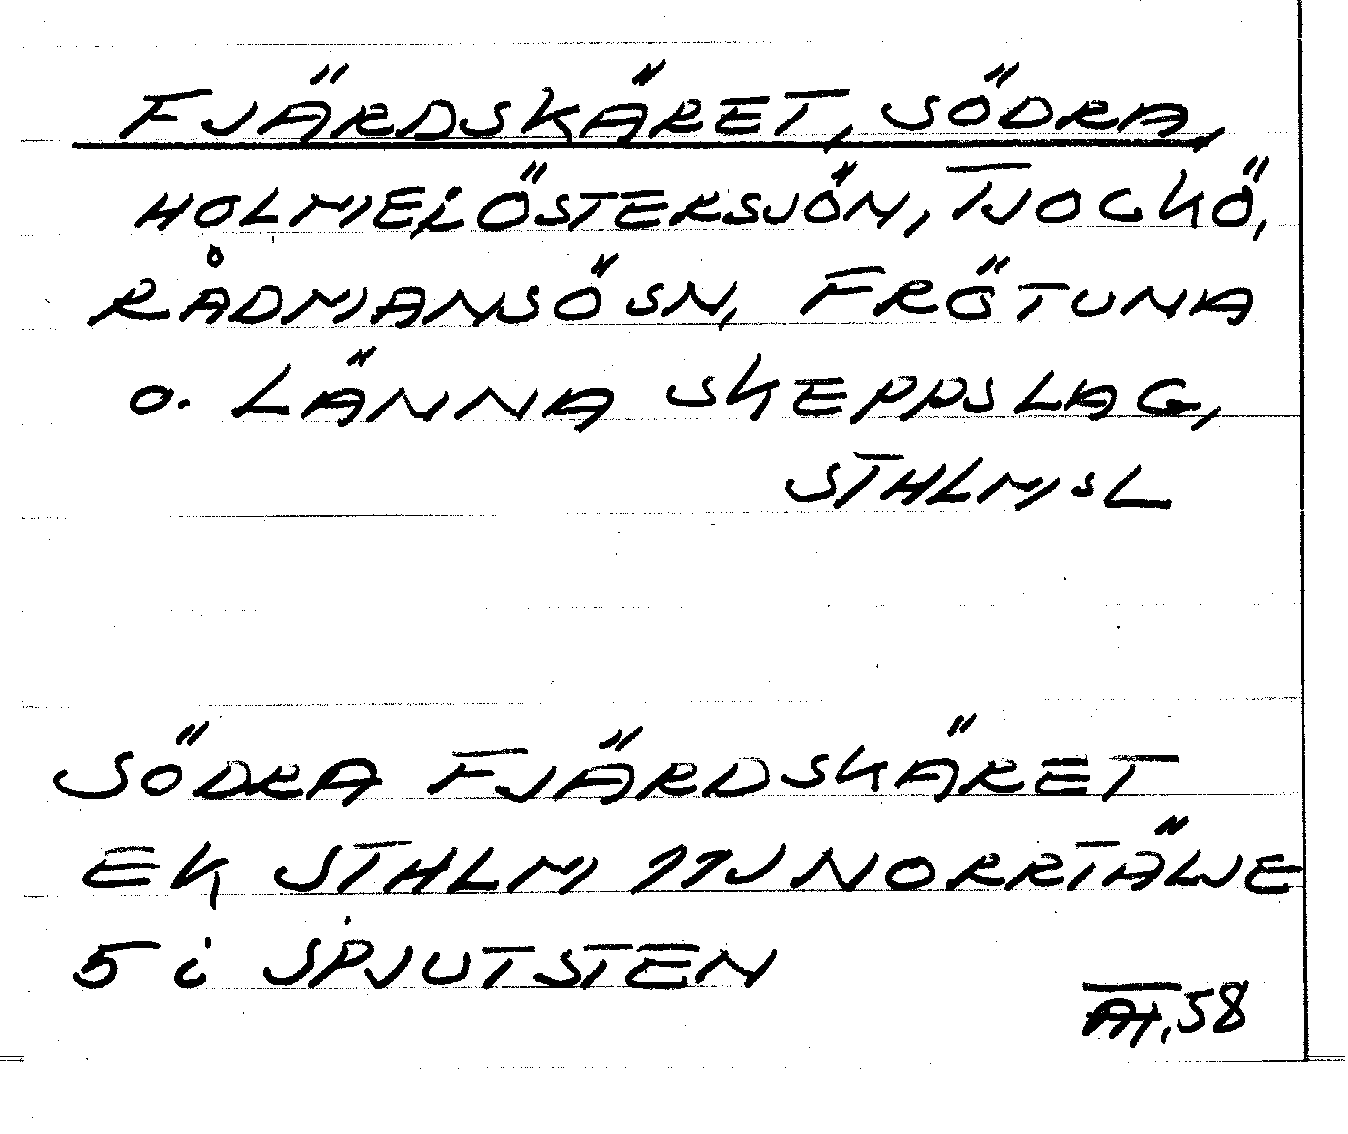 FJÄRDSKÄRET, SÖDRA,
HOLME i ÖSTERSJÖN, TJOCKÖ,
RÅDMANSÖ SN, FRÖTUNA
o. LÄNNA SKEPPSLAG,
STHLMSL
SÖDRA FJÄRDSKÄRET
EK STHLM 11J NORRTÄLJE
5 i SPJUTSTEN
58